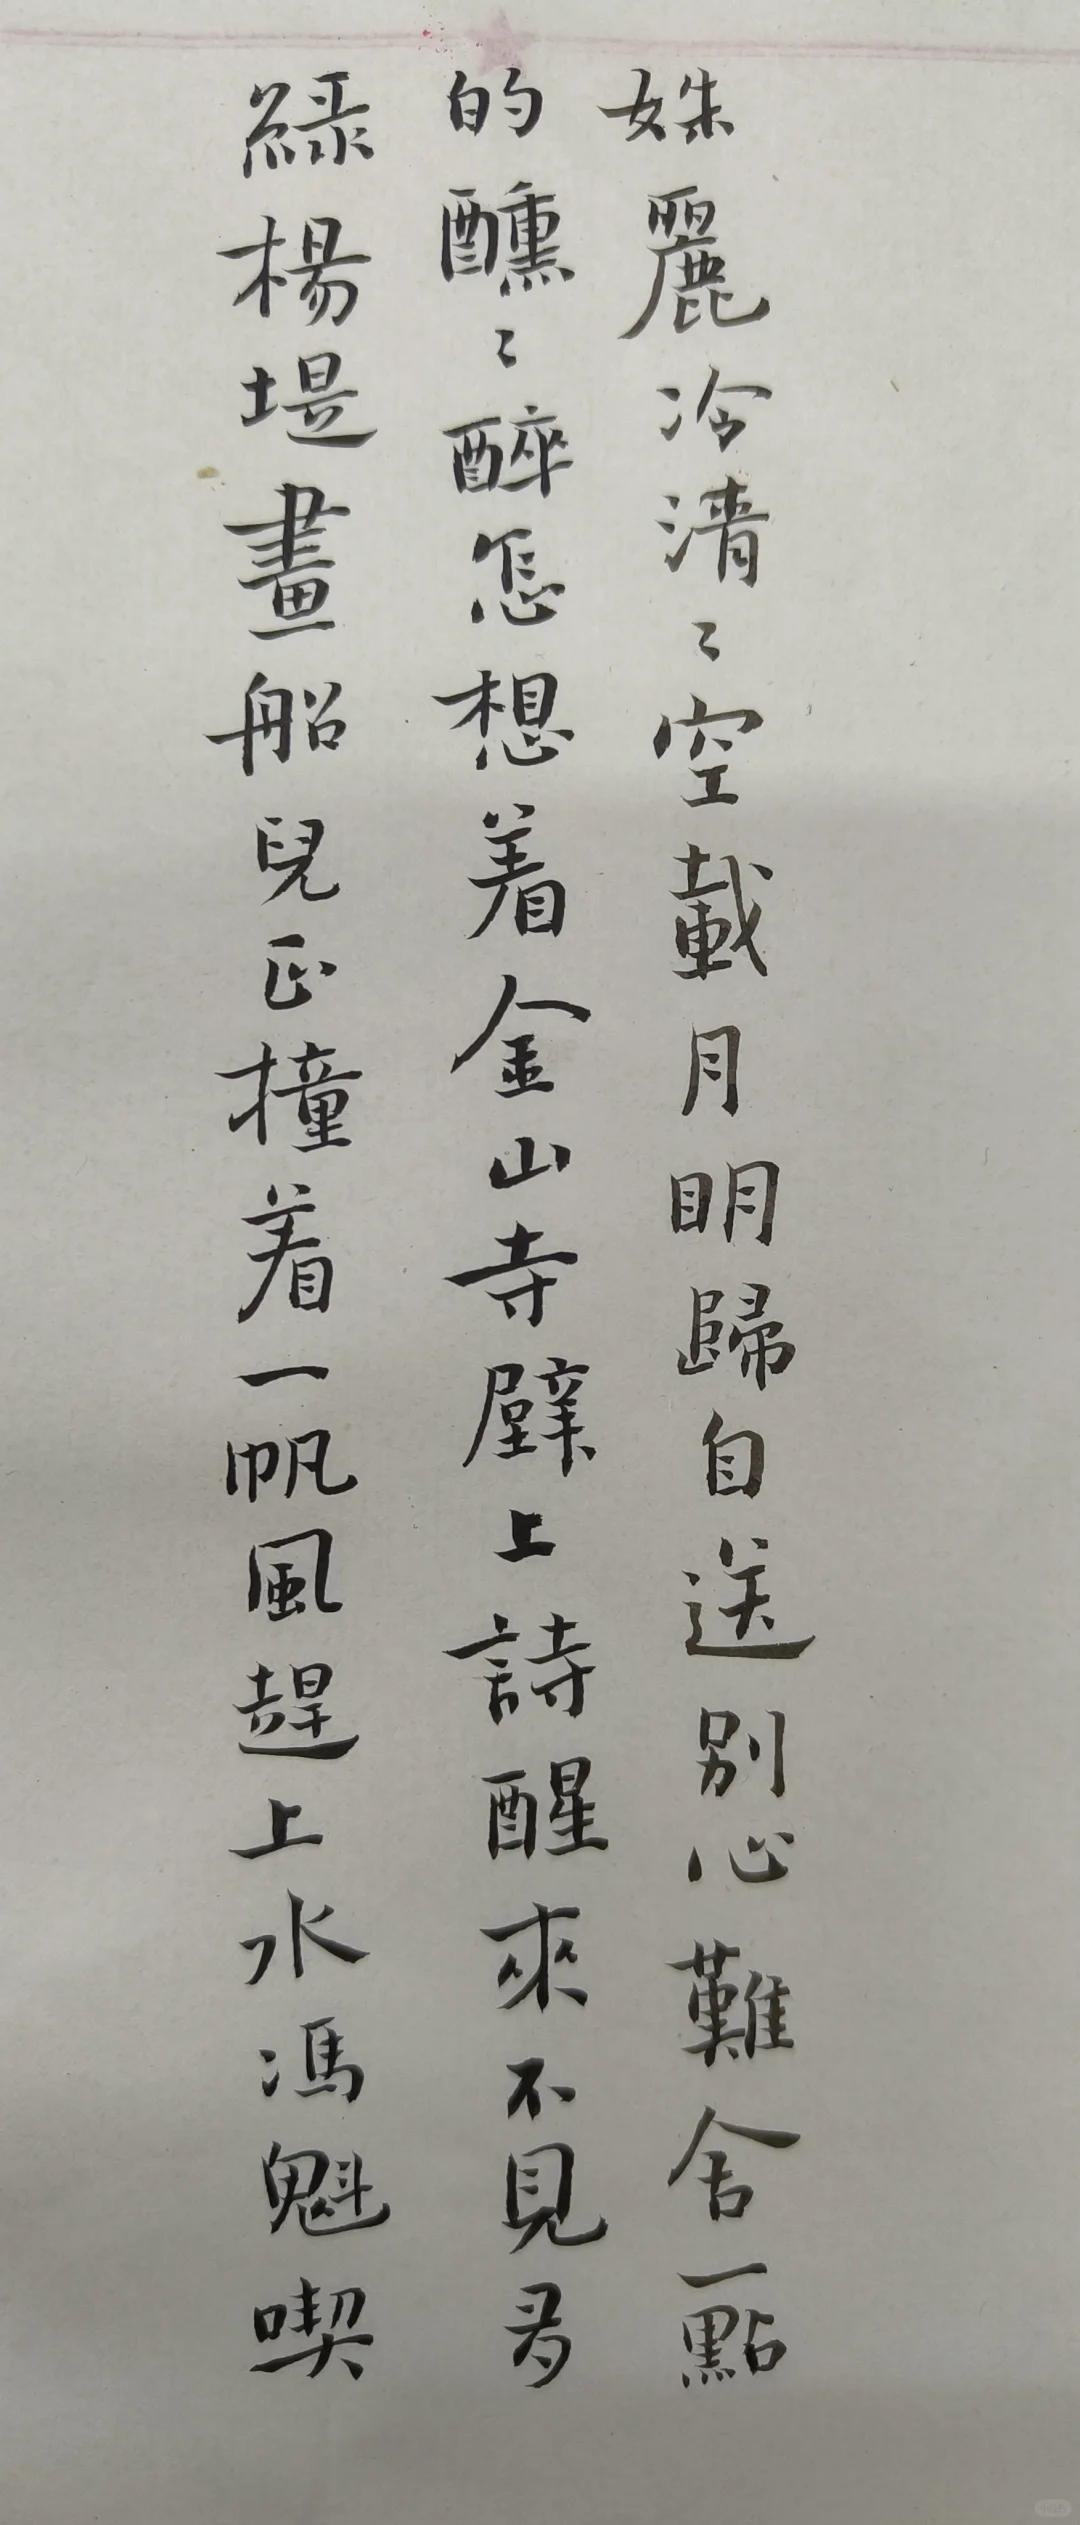 綠楊堤畫船兒正撞着一帆風趕上水馮魁喫
的醺〻醉怎想着金山寺壁上詩醒來不見多
姝麗冷清〻空載月明歸自送別心難舍一點